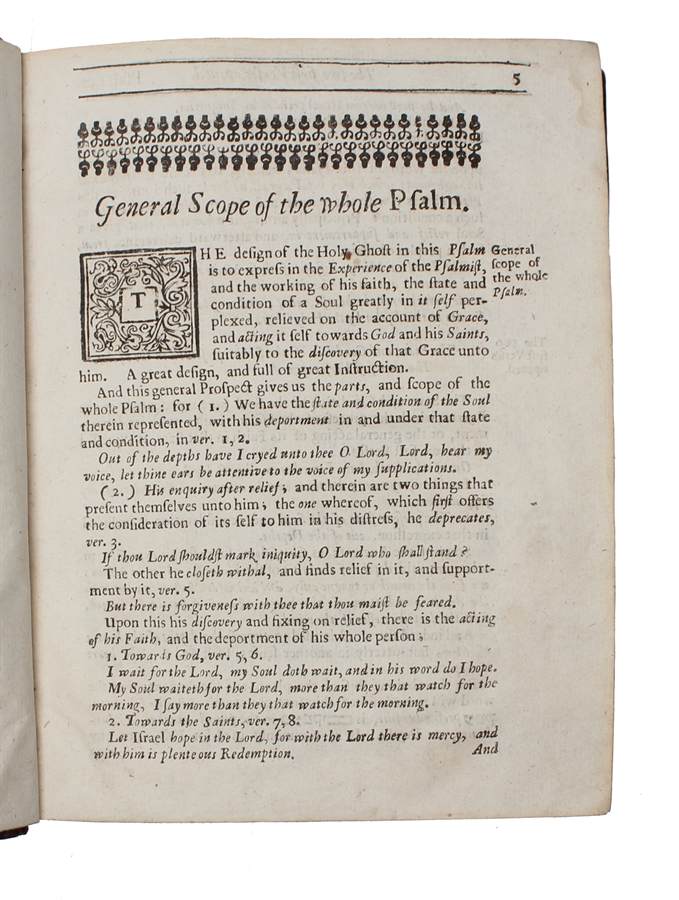 5
General Scope of the whole Pſalm.
THE deſign of the Holy Ghoſt in this Pſalm
is to expreſs in the Experience of the Pſalmiſt,
and the working of his faith, the ſtate and
condition of a Soul greatly in it ſelf per-
plexed, relieved on the account of Grace,
and acting it ſelf towards God and his Saints,
ſuitably to the diſcovery of that Grace unto
him. A great deſign, and full of great Inſtruction.
General
ſcope of
the whole
Pſalm.
And this general Proſpect gives us the parts, and ſcope of the
whole Pſalm: for (1.) We have the ſtate and condition of the Soul
therein repreſented, with his deportment in and under that ſtate
and condition, in ver. 1, 2.
Out of the depths have I cryed unto thee O Lord, Lord, hear my
voice, let thine ears be attentive to the voice of my ſupplications.
(2.) His enquiry after relief; and therein are two things that
preſent themſelves unto him; the one whereof, which firſt offers
the conſideration of its ſelf to him in his diſtreſs, he deprecates,
ver. 3.
If thou Lord ſhouldſt mark iniquity, O Lord who ſhall ſtand?
The other he cloſeth withal, and finds relief in it, and ſupport-
ment by it, ver. 5.
But there is forgiveneſs with thee that thou maiſt be feared.
Upon this his diſcovery and fixing on relief, there is the acting
of his Faith, and the deportment of his whole perſon;
1. Towards God, ver. 5, 6.
I wait for the Lord, my Soul doth wait, and in his word do I hope.
My Soul waiteth for the Lord, more than they that watch for the
morning, I ſay more than they that watch for the morning.
2. Towards the Saints, ver. 7, 8.
Let Iſrael hope in the Lord, for with the Lord there is mercy, and
with him is plenteous Redemption.
And